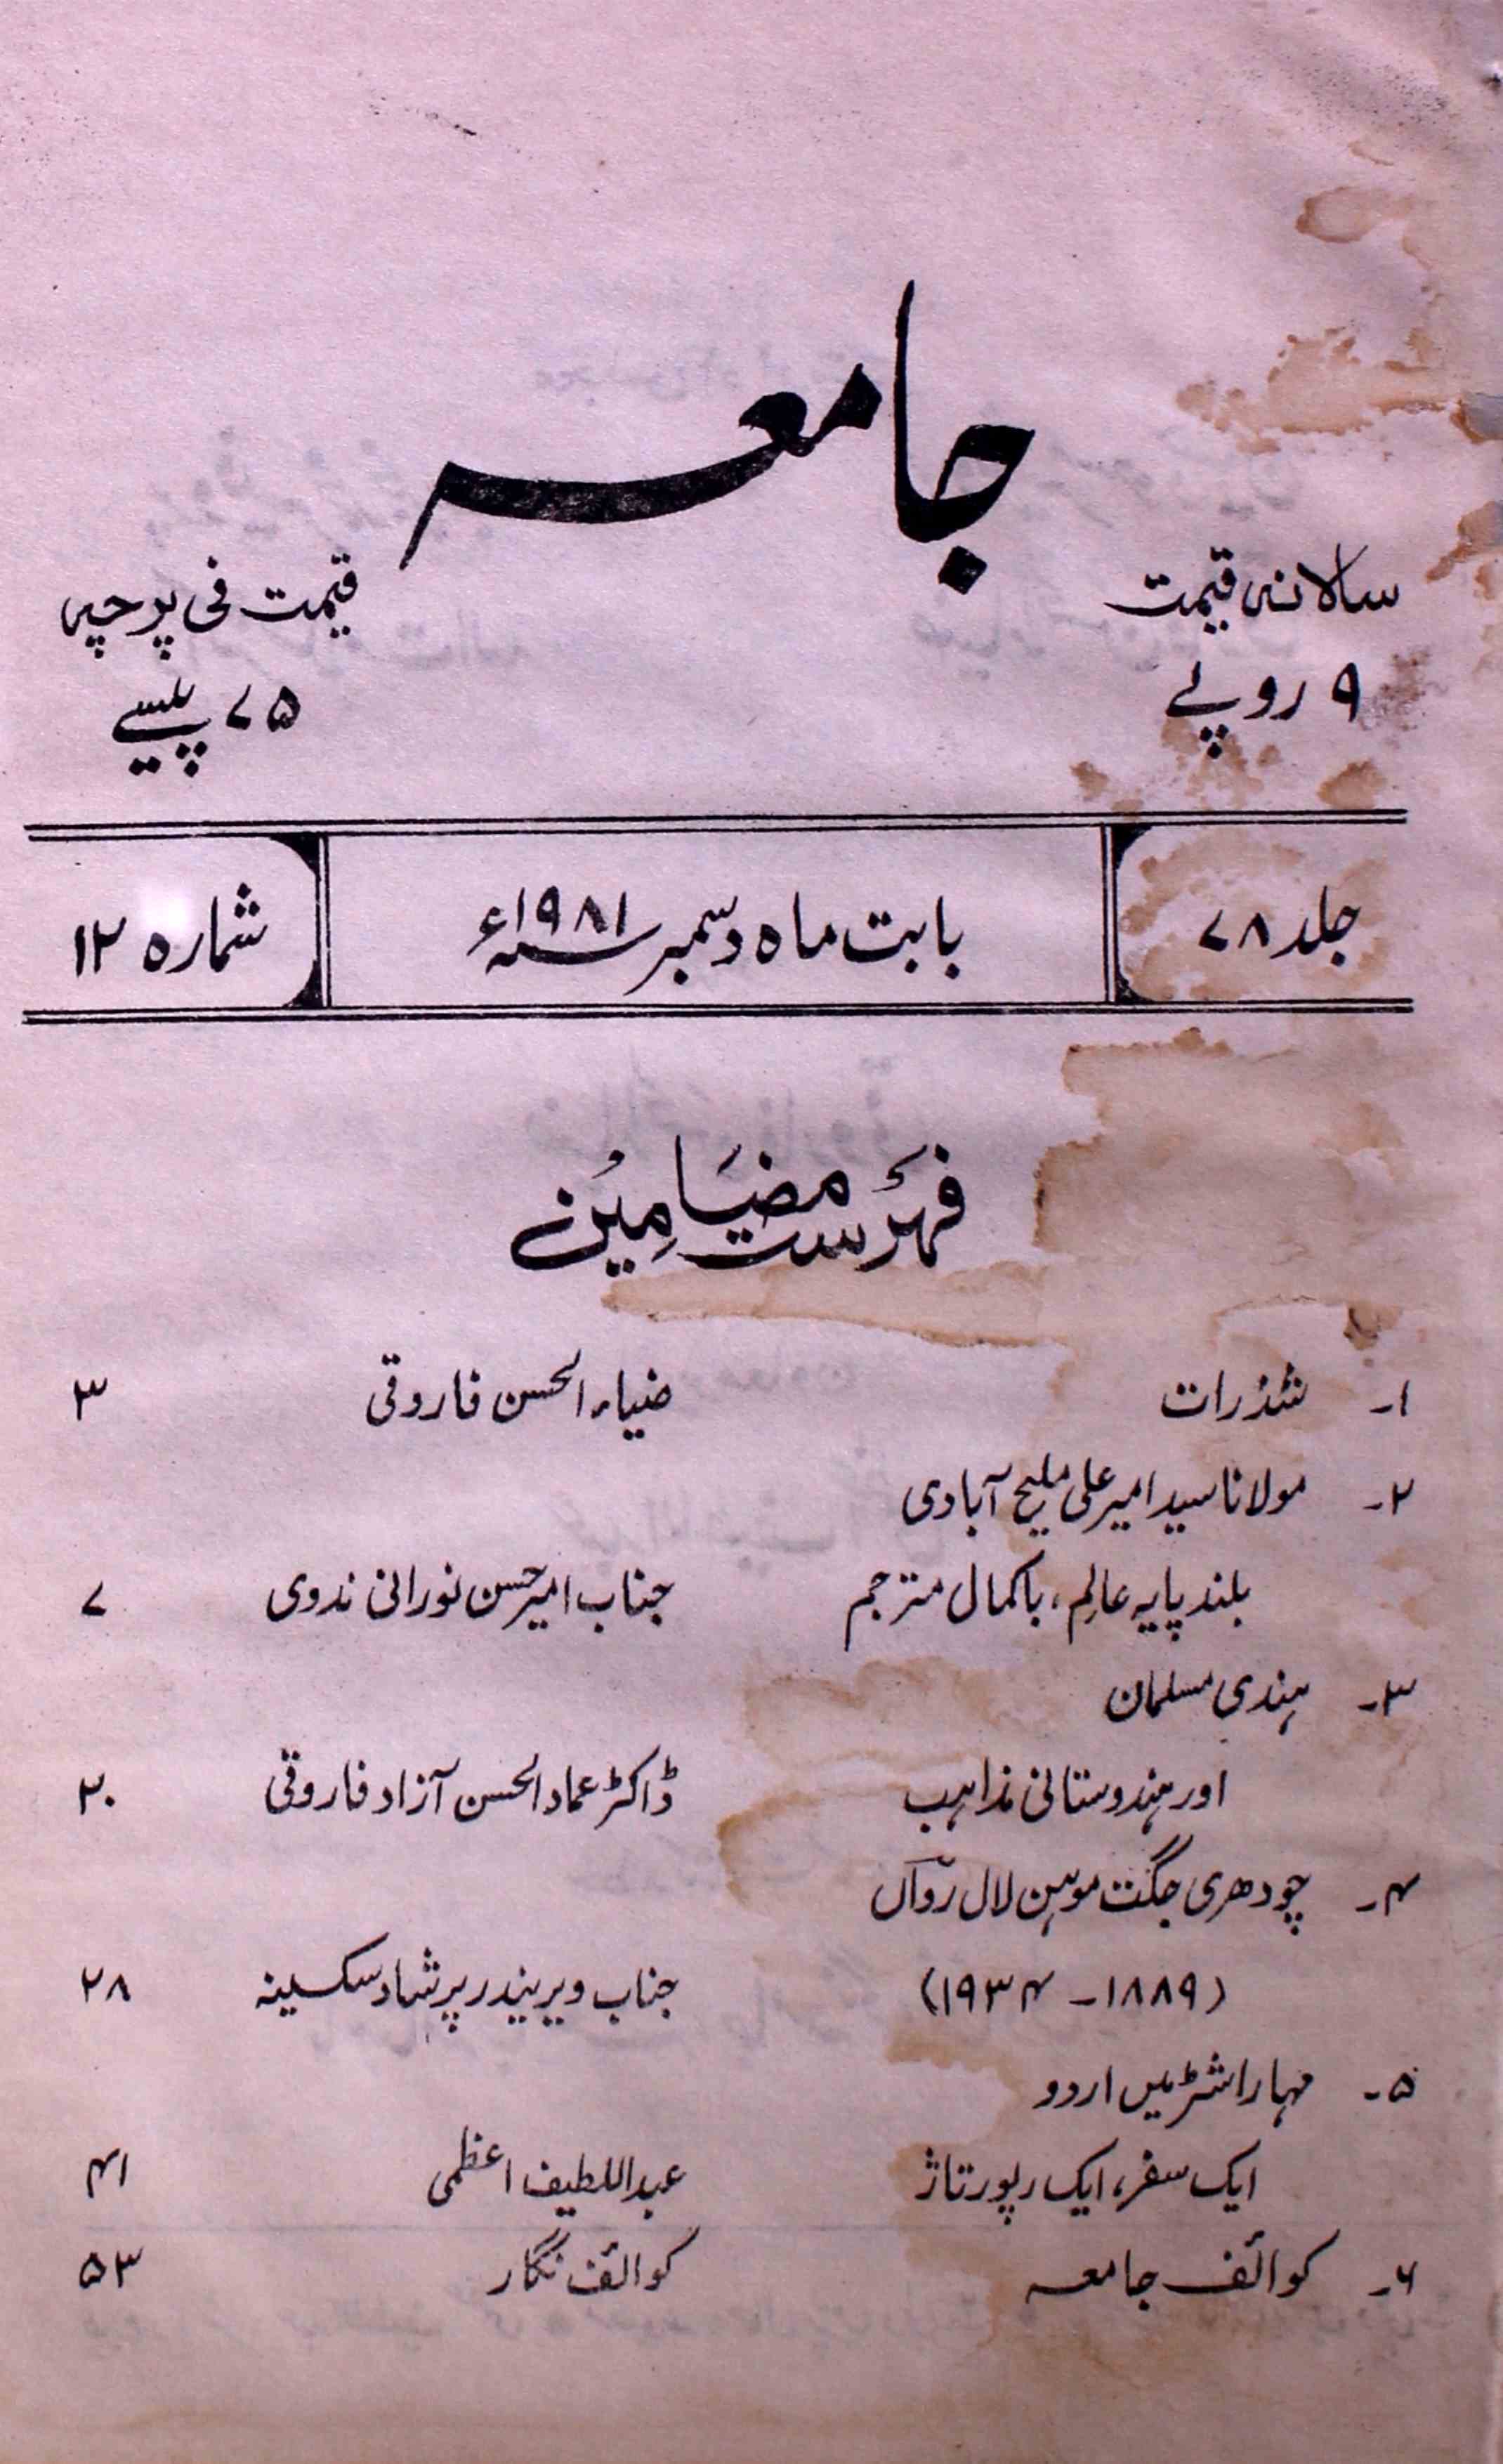 جامعہ
سالانہ قیمت
۹ روپے
قیمت فی پرچہ
۷۵ پیسے
جلد ۷۸
بابت ماہ دسمبر ۱۹۸۱ء
شمارہ ۱۲
فہرست مضامین
۱۔ شذرات ضیاء الحسن فاروقی ۳
۲۔ مولانا سید امیر علی ملیح آبادی
بلند پایہ عالِم، باکمال مترجم جناب امیر حسن نورانی ندوی ۷
۳۔ ہندی مسلمان
اور ہندوستانی مذاہب ڈاکٹر عماد الحسن آزاد فاروقی ۲۰
۴۔ چودھری جگت موہن لال رواں
(۱۸۸۹ ۔ ۱۹۳۴) جناب ویریندر پرشاد سکسینہ ۲۸
۵۔ مہاراشٹر میں اردو
ایک سفر، ایک رپورتاژ عبد اللطیف اعظمی ۴۱
۶۔ کوائف جامعہ کوائف نگار ۵۳